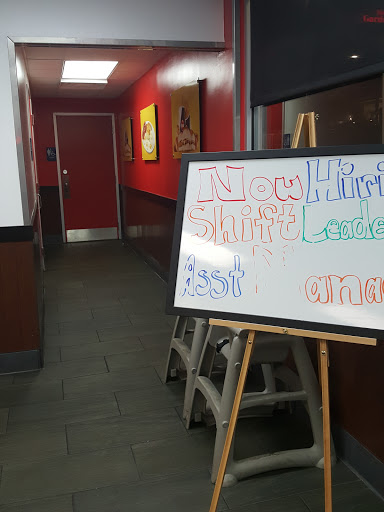 Now Hiri
Shift Leade
Asst Mana